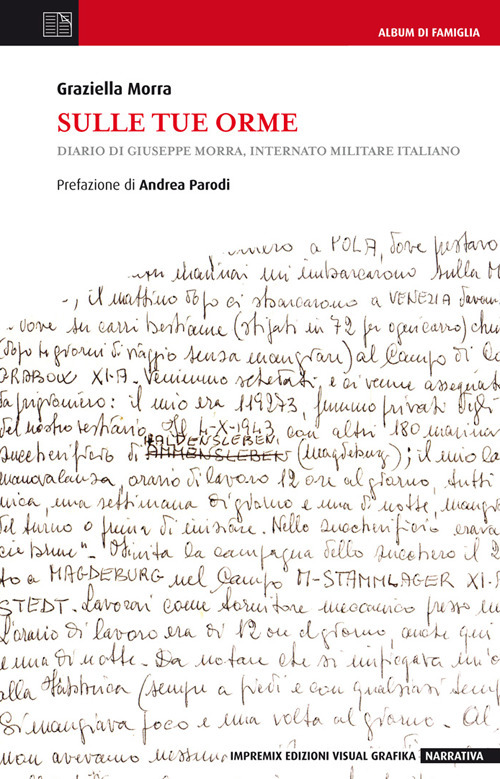 ALBUM DI FAMIGLIA
Graziella Morra
SULLE TUE ORME
DIARIO DI GIUSEPPE MORRA, INTERNATO MILITARE ITALIANO
Prefazione di Andrea Parodi
a POLA, dove
marinai mi imbarcarono sulla M
, il mattino dopo ci sbarcarono a VENEZIA
dove su carri bestiame (stipati in 72 per ogni carro) che
(dopo giorni di viaggio senza mangiare) al Campo di
GRABOW XI-A. Venimmo schedati, e ci venne assegnat
da prigioniero: il mio era 119273, fummo privati degli
del nostro vestiario. 4-X-1943 con altri 180 marinai
HALDENSLEBEN
zuccherificio di AMMENSLEBEN (Magdeburg); il mio la
manovalanza, orario di lavoro 12 ore al giorno, tutti
nica, una settimana di giorno e una di notte, mangia
del turno o prima di iniziare. Nello zuccherificio erava
Finita la campagna dello zucchero il 2
to a MAGDEBURG nel Campo M-STAMMLAGER XI-
STEDT. Lavorai come tornitore meccanico presso
L'orario di lavoro era di 12 ore al giorno, anche qui
e una di notte. Da notare che si impiegava un'o
alla Fabbrica (sempre a piedi e con qualsiasi temp
Si mangiava poco e una volta al giorno. Al
non avevamo nessun
IMPREMIX EDIZIONI VISUAL GRAFIKA NARRATIVA